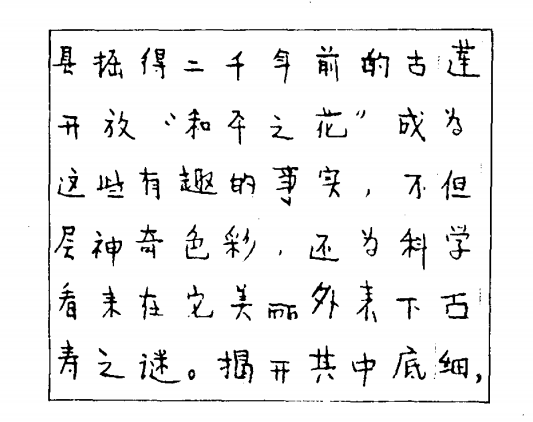 县掘得二千年前的古莲
开放“和平之花”成为
这些有趣的事实，不但
层神奇色彩，还为科学
看来在它美丽外表下古
寿之谜。揭开其中底细，